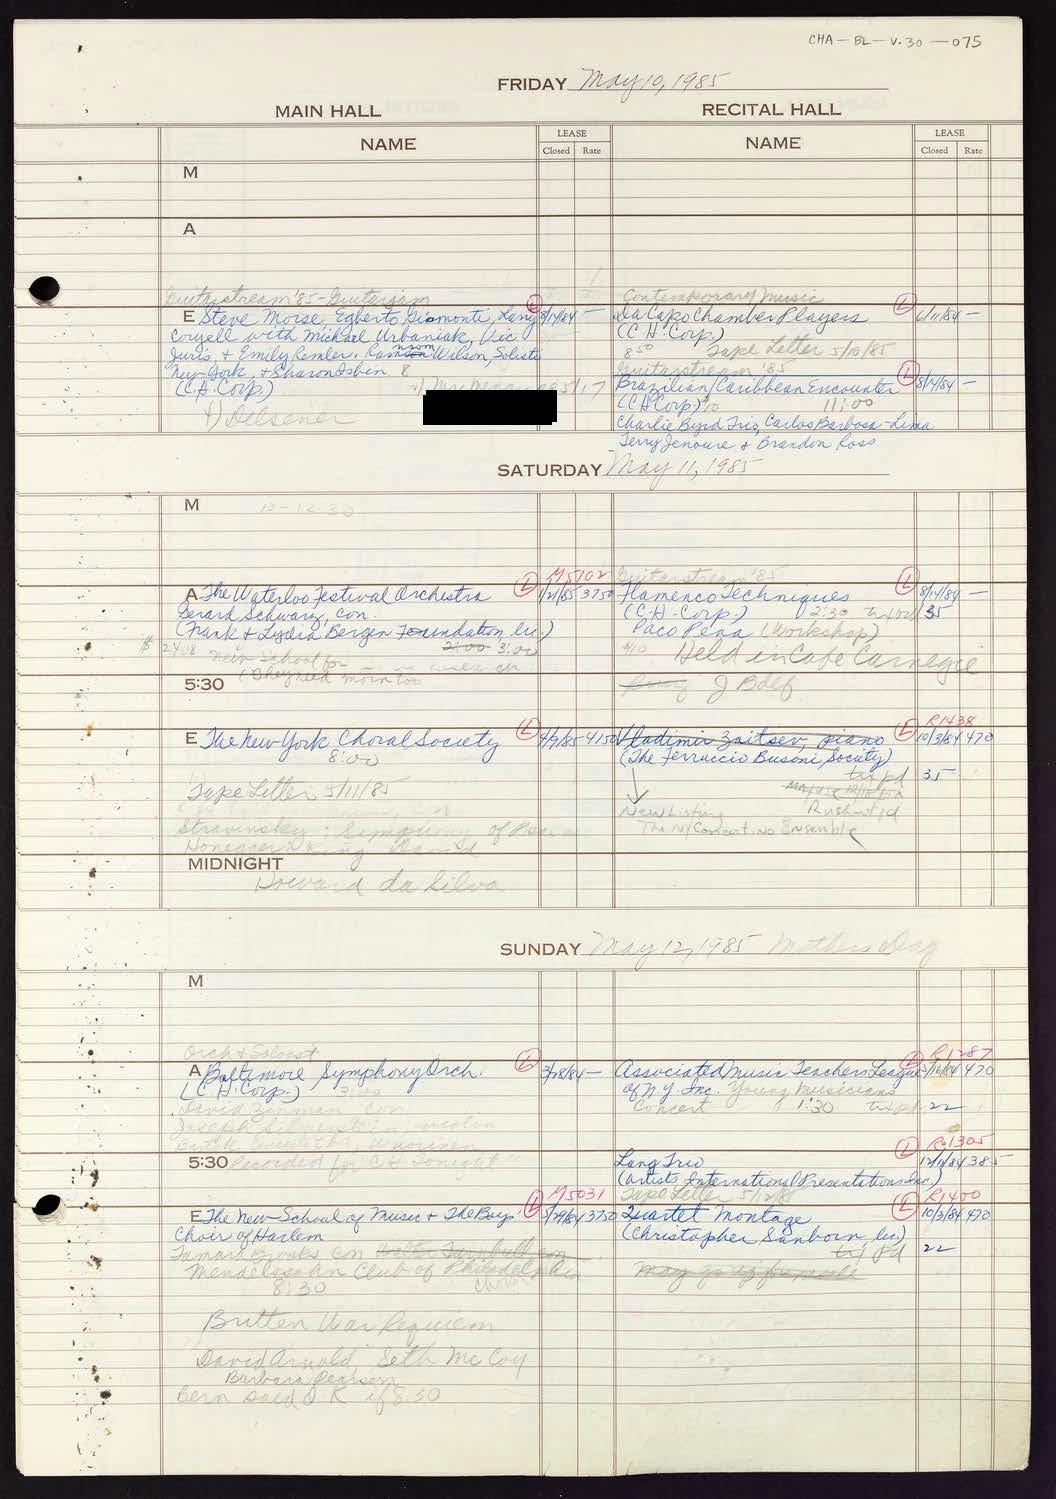 CHA-BL-V.30-075
FRIDAY May 10, 1985
MAIN HALL
RECITAL HALL
NAME
LEASE
Closed Rate
NAME
LEASE
Closed Rate
M
A
Guitarstream '85-Guitarjam
E Steve Morse, Egberto Gismonti, Larry L 8/14/84 —
Coryell with Michael Urbaniak, Vic
Juris, & Emily Remler. Ransom Wilson, Solisti
New York, & Sharon Isbin. 8
(C.H. Corp.)
1) Delsener
Contemporary Music
Da Capo Chamber Players L 6/11/84 —
(C.H. Corp.)
8:50 Tape Letter 5/10/85
Guitarstream '85
Brazilian/Caribbean Encounter L 8/14/84 —
(CH Corp) 11:00
Charlie Byrd Trio, Carlos Barbosa-Lima
Terry Jenoure & Brandon Ross
SATURDAY May 11, 1985
M 10-12:30
M5102
A The Waterloo Festival Orchestra L 1/21/85 3750
Gerard Schwarz, con.
(Frank & Lydia Bergen Foundation, Inc.)
$ 2408 New School for 2:00 3:00
(They need main too
Guitarstream '85
Flamenco Techniques L 8/14/84 —
(C.H. Corp.) 2:30 tix pd 35
Paco Pena (Workshop)
Held in Cafe Carnegie
5:30
J Bdef
E The New York Choral Society L 4/9/85 4150
8:00
Tape Letter 5/11/85
Stravinsky: Symphony of
Honegger: King David
R1438
Vladimir Zaitsev, piano L 10/3/84 470
(The Ferruccio Busoni Society)
tix pd 35-
New Listing
The NY Concertino Ensemble
MIDNIGHT
Howard da Silva
SUNDAY May 12, 1985 Mothers Day
M
Orch & Soloist
A Baltimore Symphony Orch. L 3/28/84 —
(C.H. Corp.) 3:00
David Zinman con
Joseph Silverstein, violin
R1287
Associated Music Teachers League L 470
of N.Y. Inc. Young Musicians
Concert 1:30 tix pd 22
5:30 Recorded for C.H. tonight
R1305
Lang Trio L 12/11/84 385-
(Artists International Presentations Inc.)
Tape Letter 5/12/85
M5031
E The New School of Music & The Boys L 5/29/84 3750
Choir of Harlem
Tamara Brooks con
Mendelssohn Club of Philadelphia
8:30
Britten War Requiem
David Arnold, Seth McCoy
Barbara Pearson
Bern said O K if 8:30
R1400
Quartet Montage L 10/3/84 470
(Christopher Sanborn, Inc)
tix Pd 22